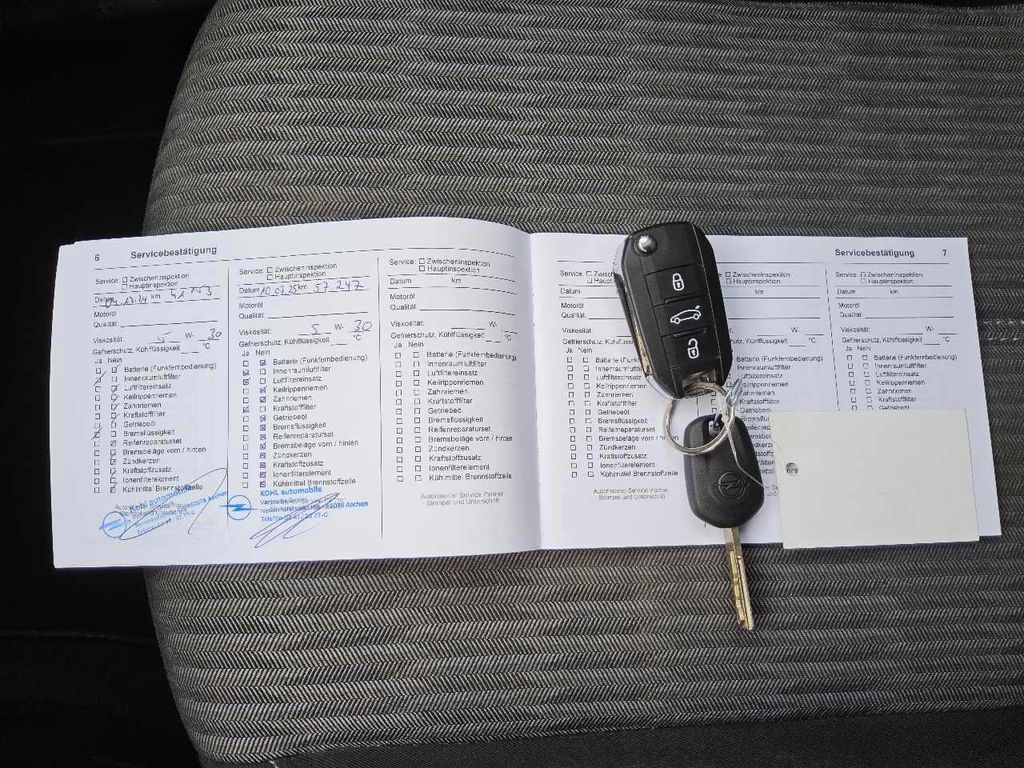 6 Servicebestätigung
Service: Zwischeninspektion
Hauptinspektion
Datum km
Motoröl
Qualität:
Viskosität: 5 W- 30
Gefrierschutz, Kühlflüssigkeit °C
Ja Nein
Batterie (Funkfernbedienung)
Innenraumluftfilter
Luftfiltereinsatz
Keilrippenriemen
Zahnriemen
Kraftstofffilter
Getriebeöl
Bremsflüssigkeit
Reifenreparaturset
Bremsbeläge vorn / hinten
Zündkerzen
Kraftstoffzusatz
Ionenfilterelement
Kühlmittel Brennstoffzelle
Kohl automobile
Service: Zwischeninspektion
Hauptinspektion
Datum 10.07.25 km 57.247
Motoröl
Qualität:
Viskosität: 5 W- 30
Gefrierschutz, Kühlflüssigkeit °C
Ja Nein
Batterie (Funkfernbedienung)
Innenraumluftfilter
Luftfiltereinsatz
Keilrippenriemen
Zahnriemen
Kraftstofffilter
Getriebeöl
Bremsflüssigkeit
Reifenreparaturset
Bremsbeläge vorn / hinten
Zündkerzen
Kraftstoffzusatz
Ionenfilterelement
Kühlmittel Brennstoffzelle
KOHL automobile
52080 Aachen
Service: Zwischeninspektion
Hauptinspektion
Datum km
Motoröl
Qualität:
Viskosität: W-
Gefrierschutz, Kühlflüssigkeit °C
Ja Nein
Batterie (Funkfernbedienung)
Innenraumluftfilter
Luftfiltereinsatz
Keilrippenriemen
Zahnriemen
Kraftstofffilter
Getriebeöl
Bremsflüssigkeit
Reifenreparaturset
Bremsbeläge vorn / hinten
Zündkerzen
Kraftstoffzusatz
Ionenfilterelement
Kühlmittel Brennstoffzelle
Autorisierter Service Partner
Stempel und Unterschrift
Servicebestätigung 7
Service:
Datum
Motoröl
Qualität:
Viskosität:
Gefrierschutz, Kühlflüssigkeit
Ja Nein
Batterie
Keilrippenriemen
Zahnriemen
Kraftstofffilter
Getriebeöl
Bremsflüssigkeit
Reifenreparaturset
Bremsbeläge vorn
Zündkerzen
Kraftstoffzusatz
Ionenfilterelement
Kühlmittel
Stempel und Unterschrift
Zwischeninspektion
Hauptinspektion
km
W-
°C
(Funkfernbedienung)
Service: Zwischeninspektion
Hauptinspektion
Datum km
Motoröl
Qualität:
Viskosität: W-
Gefrierschutz, Kühlflüssigkeit °C
Ja Nein
Batterie (Funkfernbedienung)
Innenraumluftfilter
Luftfiltereinsatz
Keilrippenriemen
Zahnriemen
Kraftstofffilter